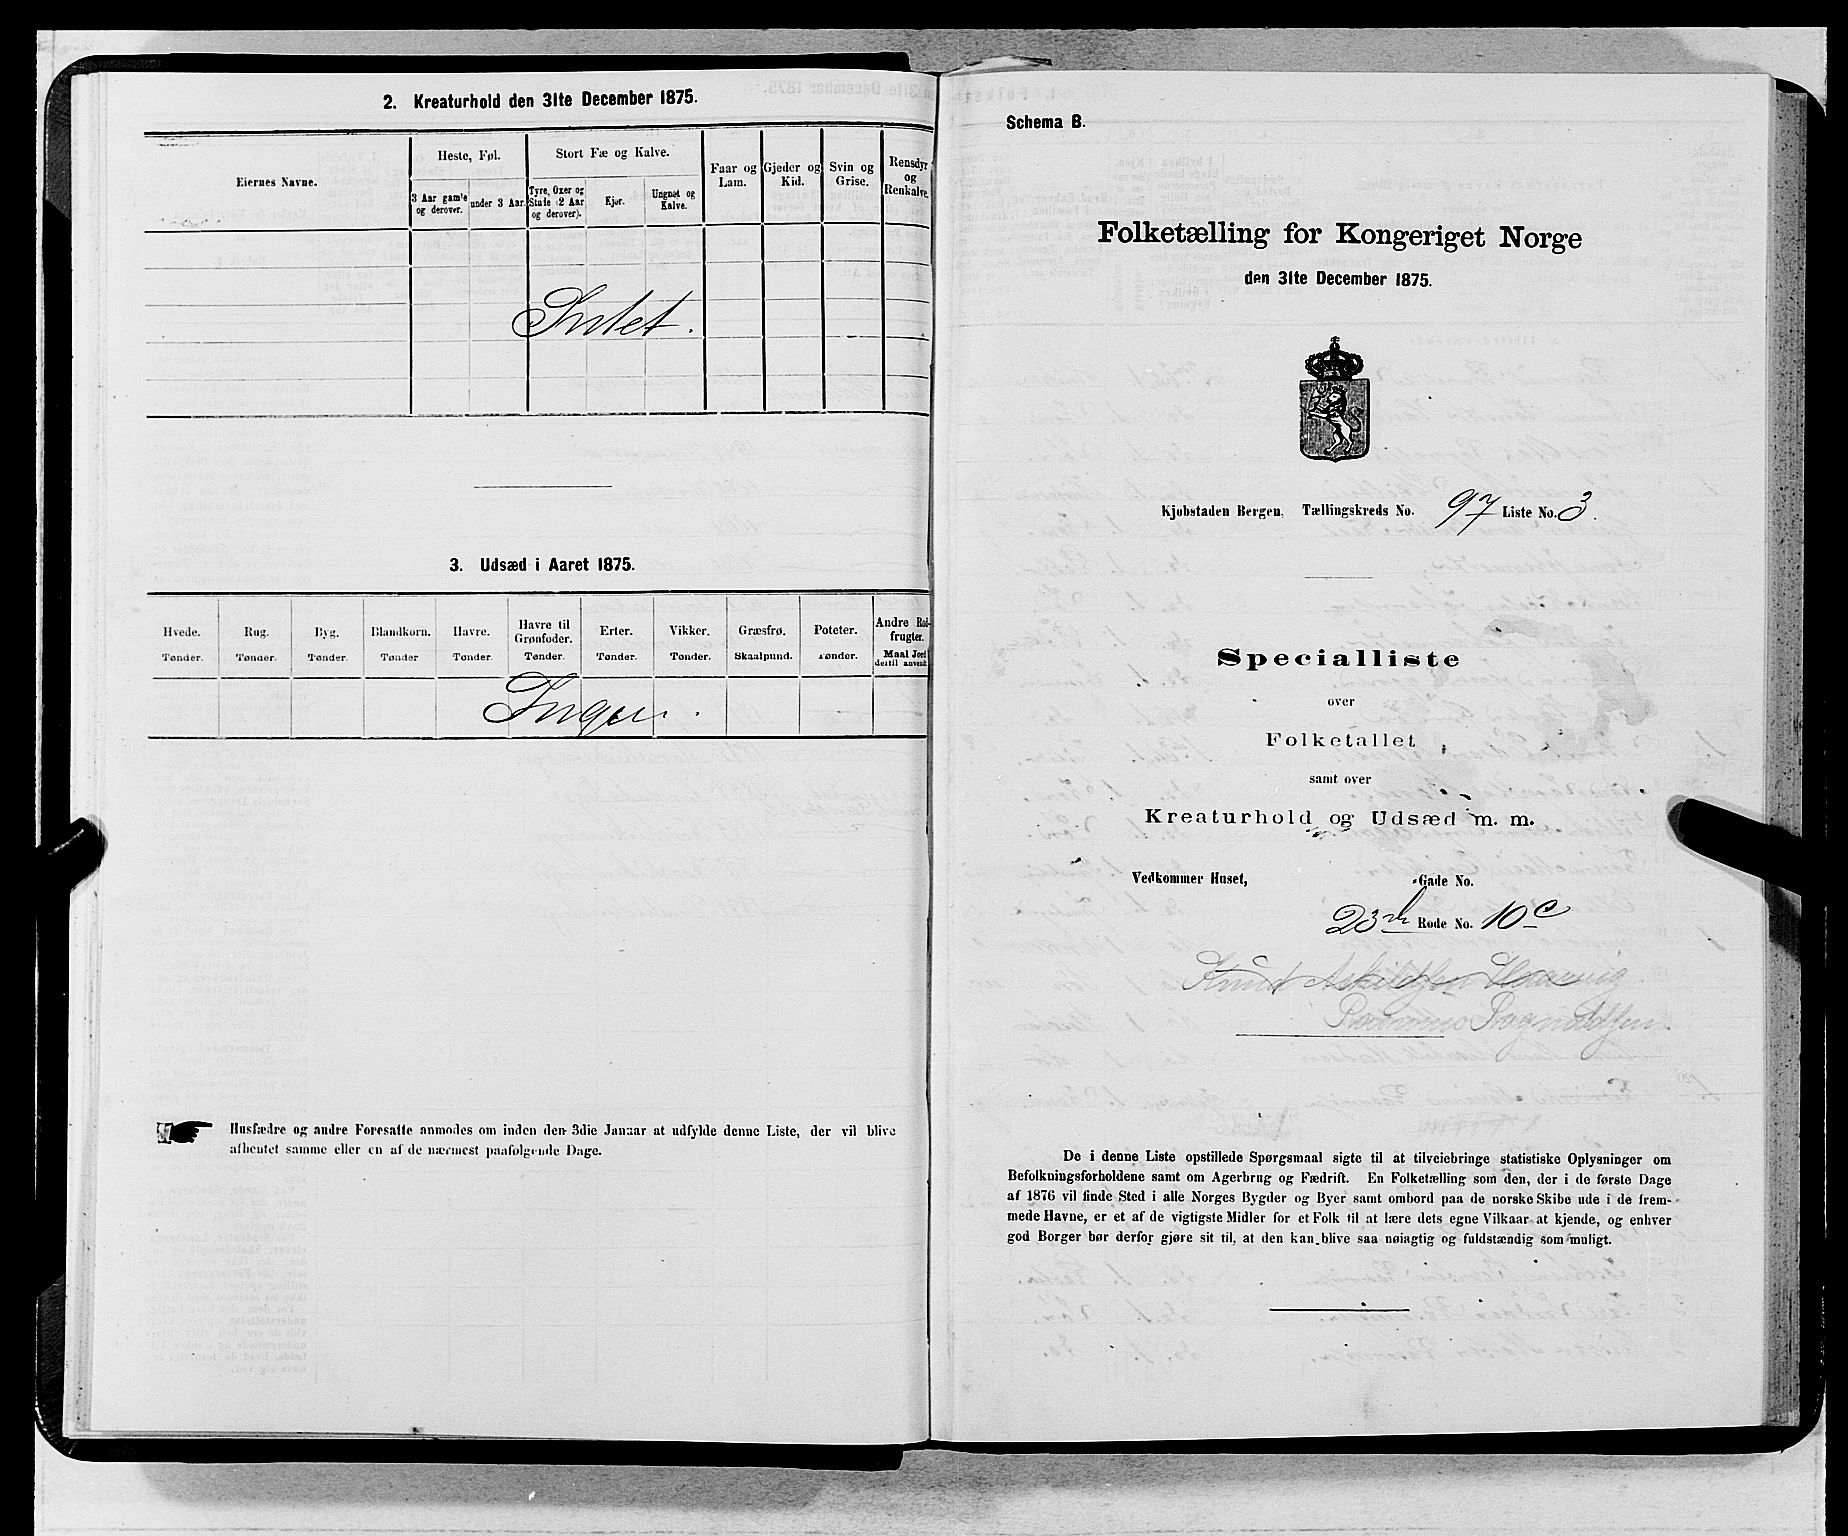 2. Kreaturhold den 31te December 1875.
Eiernes Navne.
Heste, Føl.
Stort Fæ og Kalve.
Faar og
Lam.
Gjeder og
Kid.
Svin og
Grise.
Rensdyr
og
Renkalve.
3 Aar gamle
og derover.
under 3 Aar.
Tyre, Oxer og
Stude (2 Aar
og derover).
Kjør.
Ungnøt og
Kalve.
Intet.
3. Udsæd i Aaret 1875.
Hvede.
Rug.
Byg.
Blandkorn.
Havre.
Havre til
Grønfoder.
Erter.
Vikker.
Græsfrø.
Poteter.
Andre Rod-
frugter.
Tønder.
Tønder.
Tønder.
Tønder
Tønder.
Tønder.
Tønder.
Tønder.
Skaalpund.
Tønder.
Maal Jord
dertil anvendt
Ingen.
Husfædre og andre Foresatte anmodes om inden den 3die Januar at udfylde denne Liste, der vil blive
afhentet samme eller en af de nærmest paafølgende Dage.
Schema B.
Folketælling for Kongeriget Norge
den 31te December 1875.
Kjøbstaden Bergen, Tællingskreds No. 97 Liste No. 3.
Specialliste
over
Folketallet
samt over
Kreaturhold og Udsæd m. m.
Vedkommer Huset, -Gade No.
23de Rode No. 10c
Knud Askildsen
Rasmus Rognaldsen.
De i denne Liste opstillede Spørgsmaal sigte til at tilveiebringe statistiske Oplysninger om
Befolkningsforholdene samt om Agerbrug og Fædrift. En Folketælling som den, der i de første Dage
af 1876 vil finde Sted i alle Norges Bygder og Byer samt ombord paa de norske Skibe ude i de frem-
mede Havne, er et af de vigtigste Midler for et Folk til at lære dets egne Vilkaar at kjende, og enhver
god Borger bør derfor gjøre sit til, at den kan blive saa nøiagtig og fuldstændig som muligt.